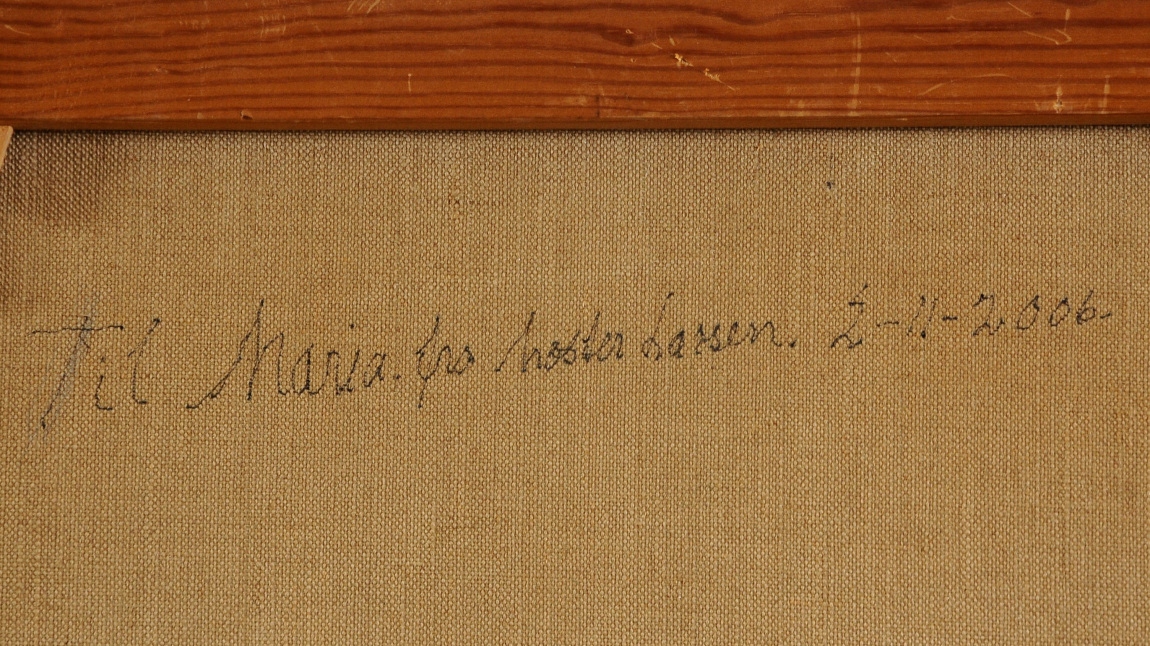 Til Maria. fra Moster Larsen. 2-11-2006